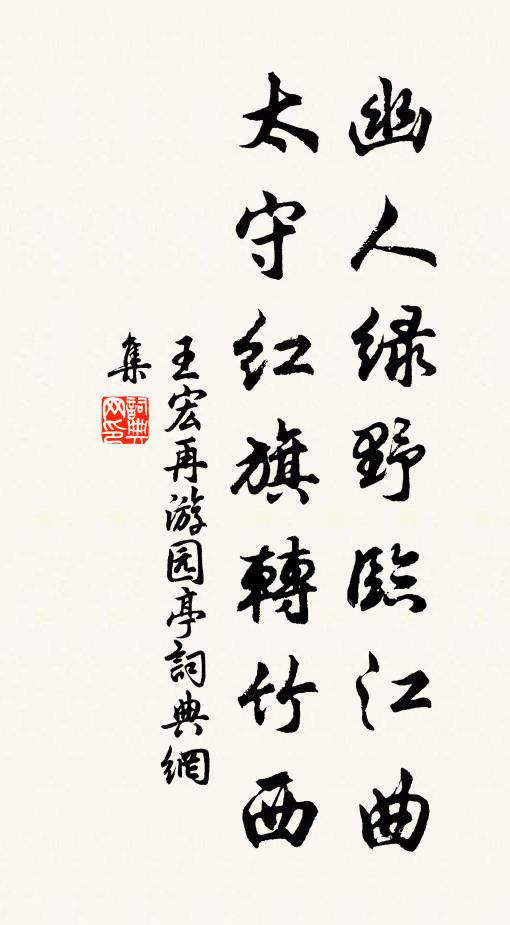 幽人绿野臨江曲
太守红旗轉竹西
王宏再游园亭詞典網
集
詞典
网印